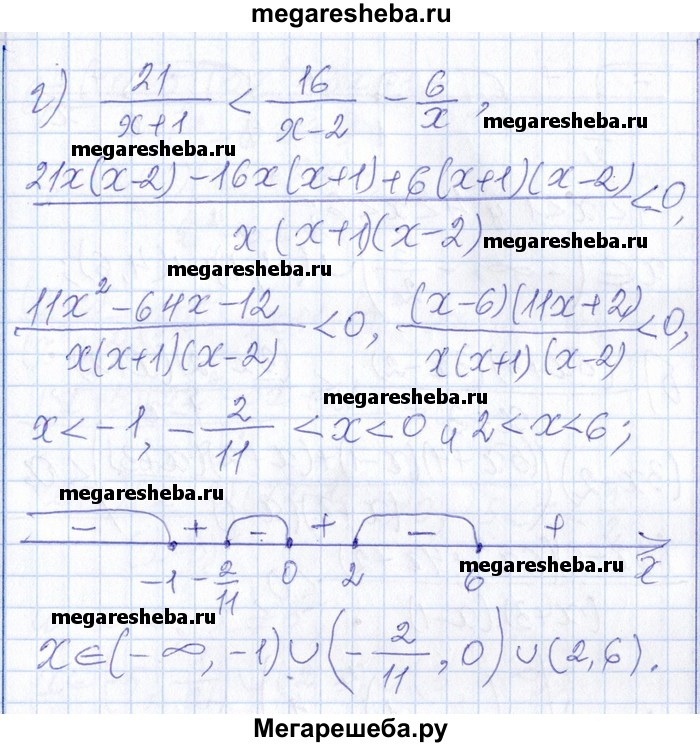 megaresheba.ru
г) 21/(x+1) < 16/(x-2) - 6/x,
megaresheba.ru
megaresheba.ru
(21x(x-2) - 16x(x+1) + 6(x+1)(x-2))/(x(x+1)(x-2)) < 0,
megaresheba.ru
megaresheba.ru
(11x² - 64x - 12)/(x(x+1)(x-2)) < 0, ((x-6)(11x+2))/(x(x+1)(x-2)) < 0,
megaresheba.ru
x < -1, -2/11 < x < 0 и 2 < x < 6;
megaresheba.ru
- + - + - +
megaresheba.ru
-1 -2/11 0 2 6 x
megaresheba.ru
x ∈ (-∞, -1) ∪ (-2/11, 0) ∪ (2, 6).
Мегарешеба.ру